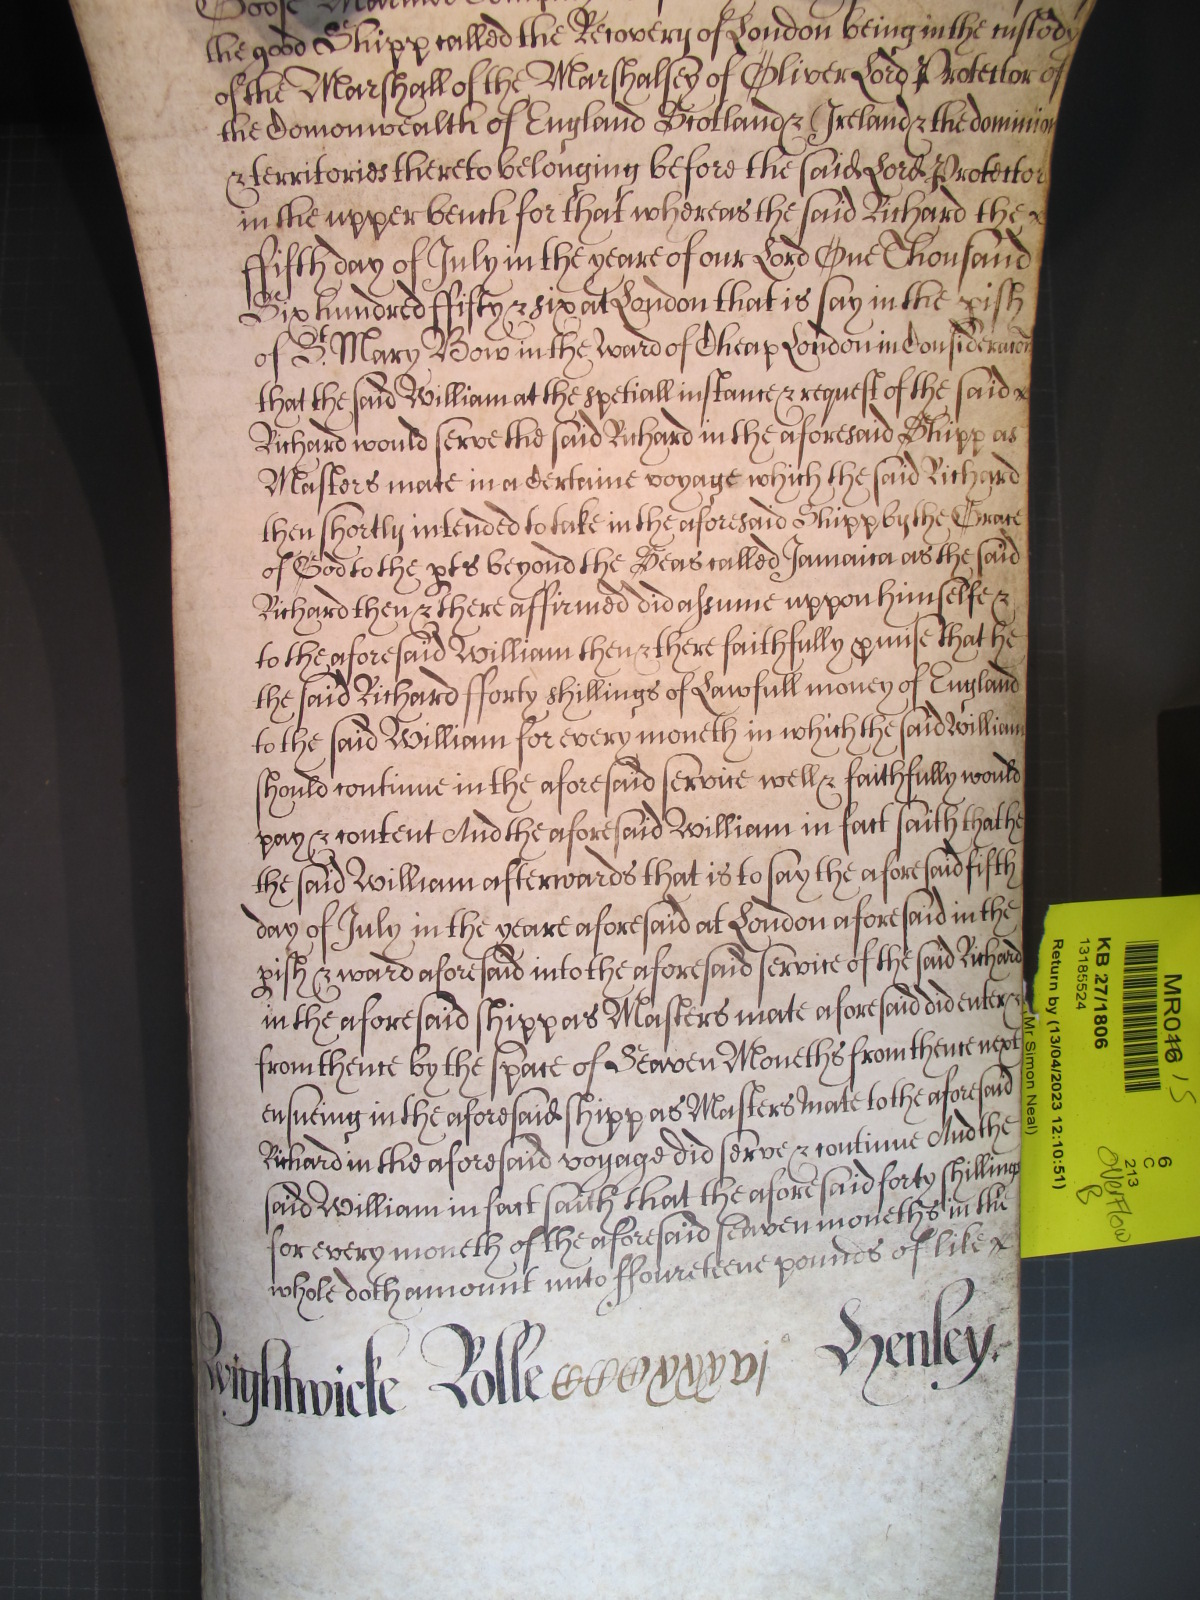 Goose
the good Shipp called the Recovery of London being in the custody
of the Marshall of the Marshalsey of Oliver Lord Protector of
the Comonwealth of England Scotland & Ireland & the dominions
& territories thereto belonging before the said Lord Protector
in the upper bench for that whereas the said Richard the
ffifth day of July in the yeare of our Lord One Thousand
Six hundred ffifty & six at London that is say in the pish
of St. Mary Bow in the Ward of Cheap London in Consideracon
that the said William at the spetiall instance & request of the said
Richard would serve the said Richard in the aforesaid Shipp as
Masters mate in a Certaine voyage which the said Richard
then shortly intended to take in the aforesaid Shipp by the Grace
of God to the pts beyond the Seas called Jamaica as the said
Richard then & there affirmed did assume uppon himselfe &
to the aforesaid William then & there faithfully pmise that he
the said Richard fforty shillings of Lawfull money of England
to the said William for every moneth in which the said William
should continue in the aforesaid service well & faithfully would
pay & content And the aforesaid William in fact saith that he
the said William afterwards that is to say the aforesaid fifth
day of July in the yeare aforesaid at London aforesaid in the
pish & ward aforesaid into the aforesaid service of the said Richard
in the aforesaid shipp as Masters mate aforesaid did enter &
from thence by the space of Seaven Moneths from thence next
ensueing in the aforesaid shipp as Masters Mate to the aforesaid
Richard in the aforesaid voyage did serve & continue And the
said William in fact saith that the aforesaid forty shillings
for every moneth of the aforesaid seaven moneths in the
whole doth amount unto ffoureteene pounds of like
Wightwicke Rolle CCCCxxxvi Henley.
MR046 / 5
KB 27/1806
13185524
Return by (13/04/2023 12:10:51)
Mr Simon Neal)
6
C
213
Overflow
B